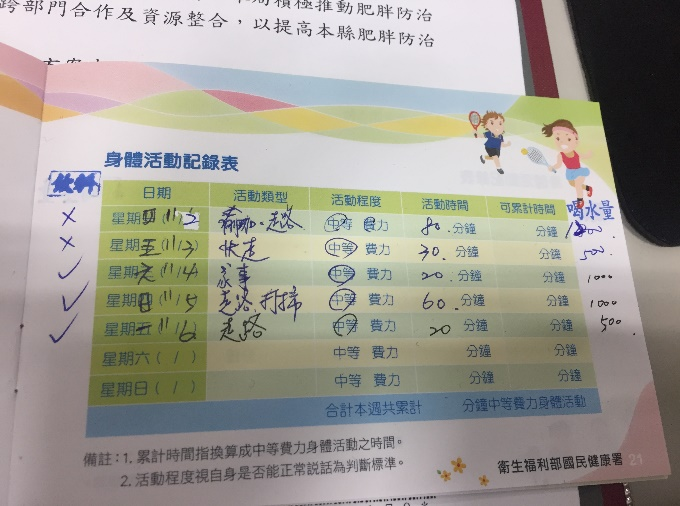 跨部門合作及資源整合，以提高本縣肥胖防治
積極推動肥胖防治
身體活動記錄表
飲料 日期 活動類型 活動程度 活動時間 可累計時間 喝水量
× 星期四 11/2 瑜珈.走路 中等 費力 80.分鐘 分鐘
× 星期五 11/3 快走 中等 費力 30.分鐘 分鐘 500
✓ 星期六 11/4 家事 中等 費力 20.分鐘 分鐘 1000
✓ 星期日 11/5 走路.打掃 中等 費力 60.分鐘 分鐘 1000
✓ 星期一 11/6 走路 中等 費力 20 分鐘 分鐘 500
星期六( / ) 中等 費力 分鐘 分鐘
星期日( / ) 中等 費力 分鐘 分鐘
合計本週共累計 分鐘中等費力身體活動
備註：1. 累計時間指換算成中等費力身體活動之時間。
2. 活動程度視自身是否能正常說話為判斷標準。
衛生福利部國民健康署 21